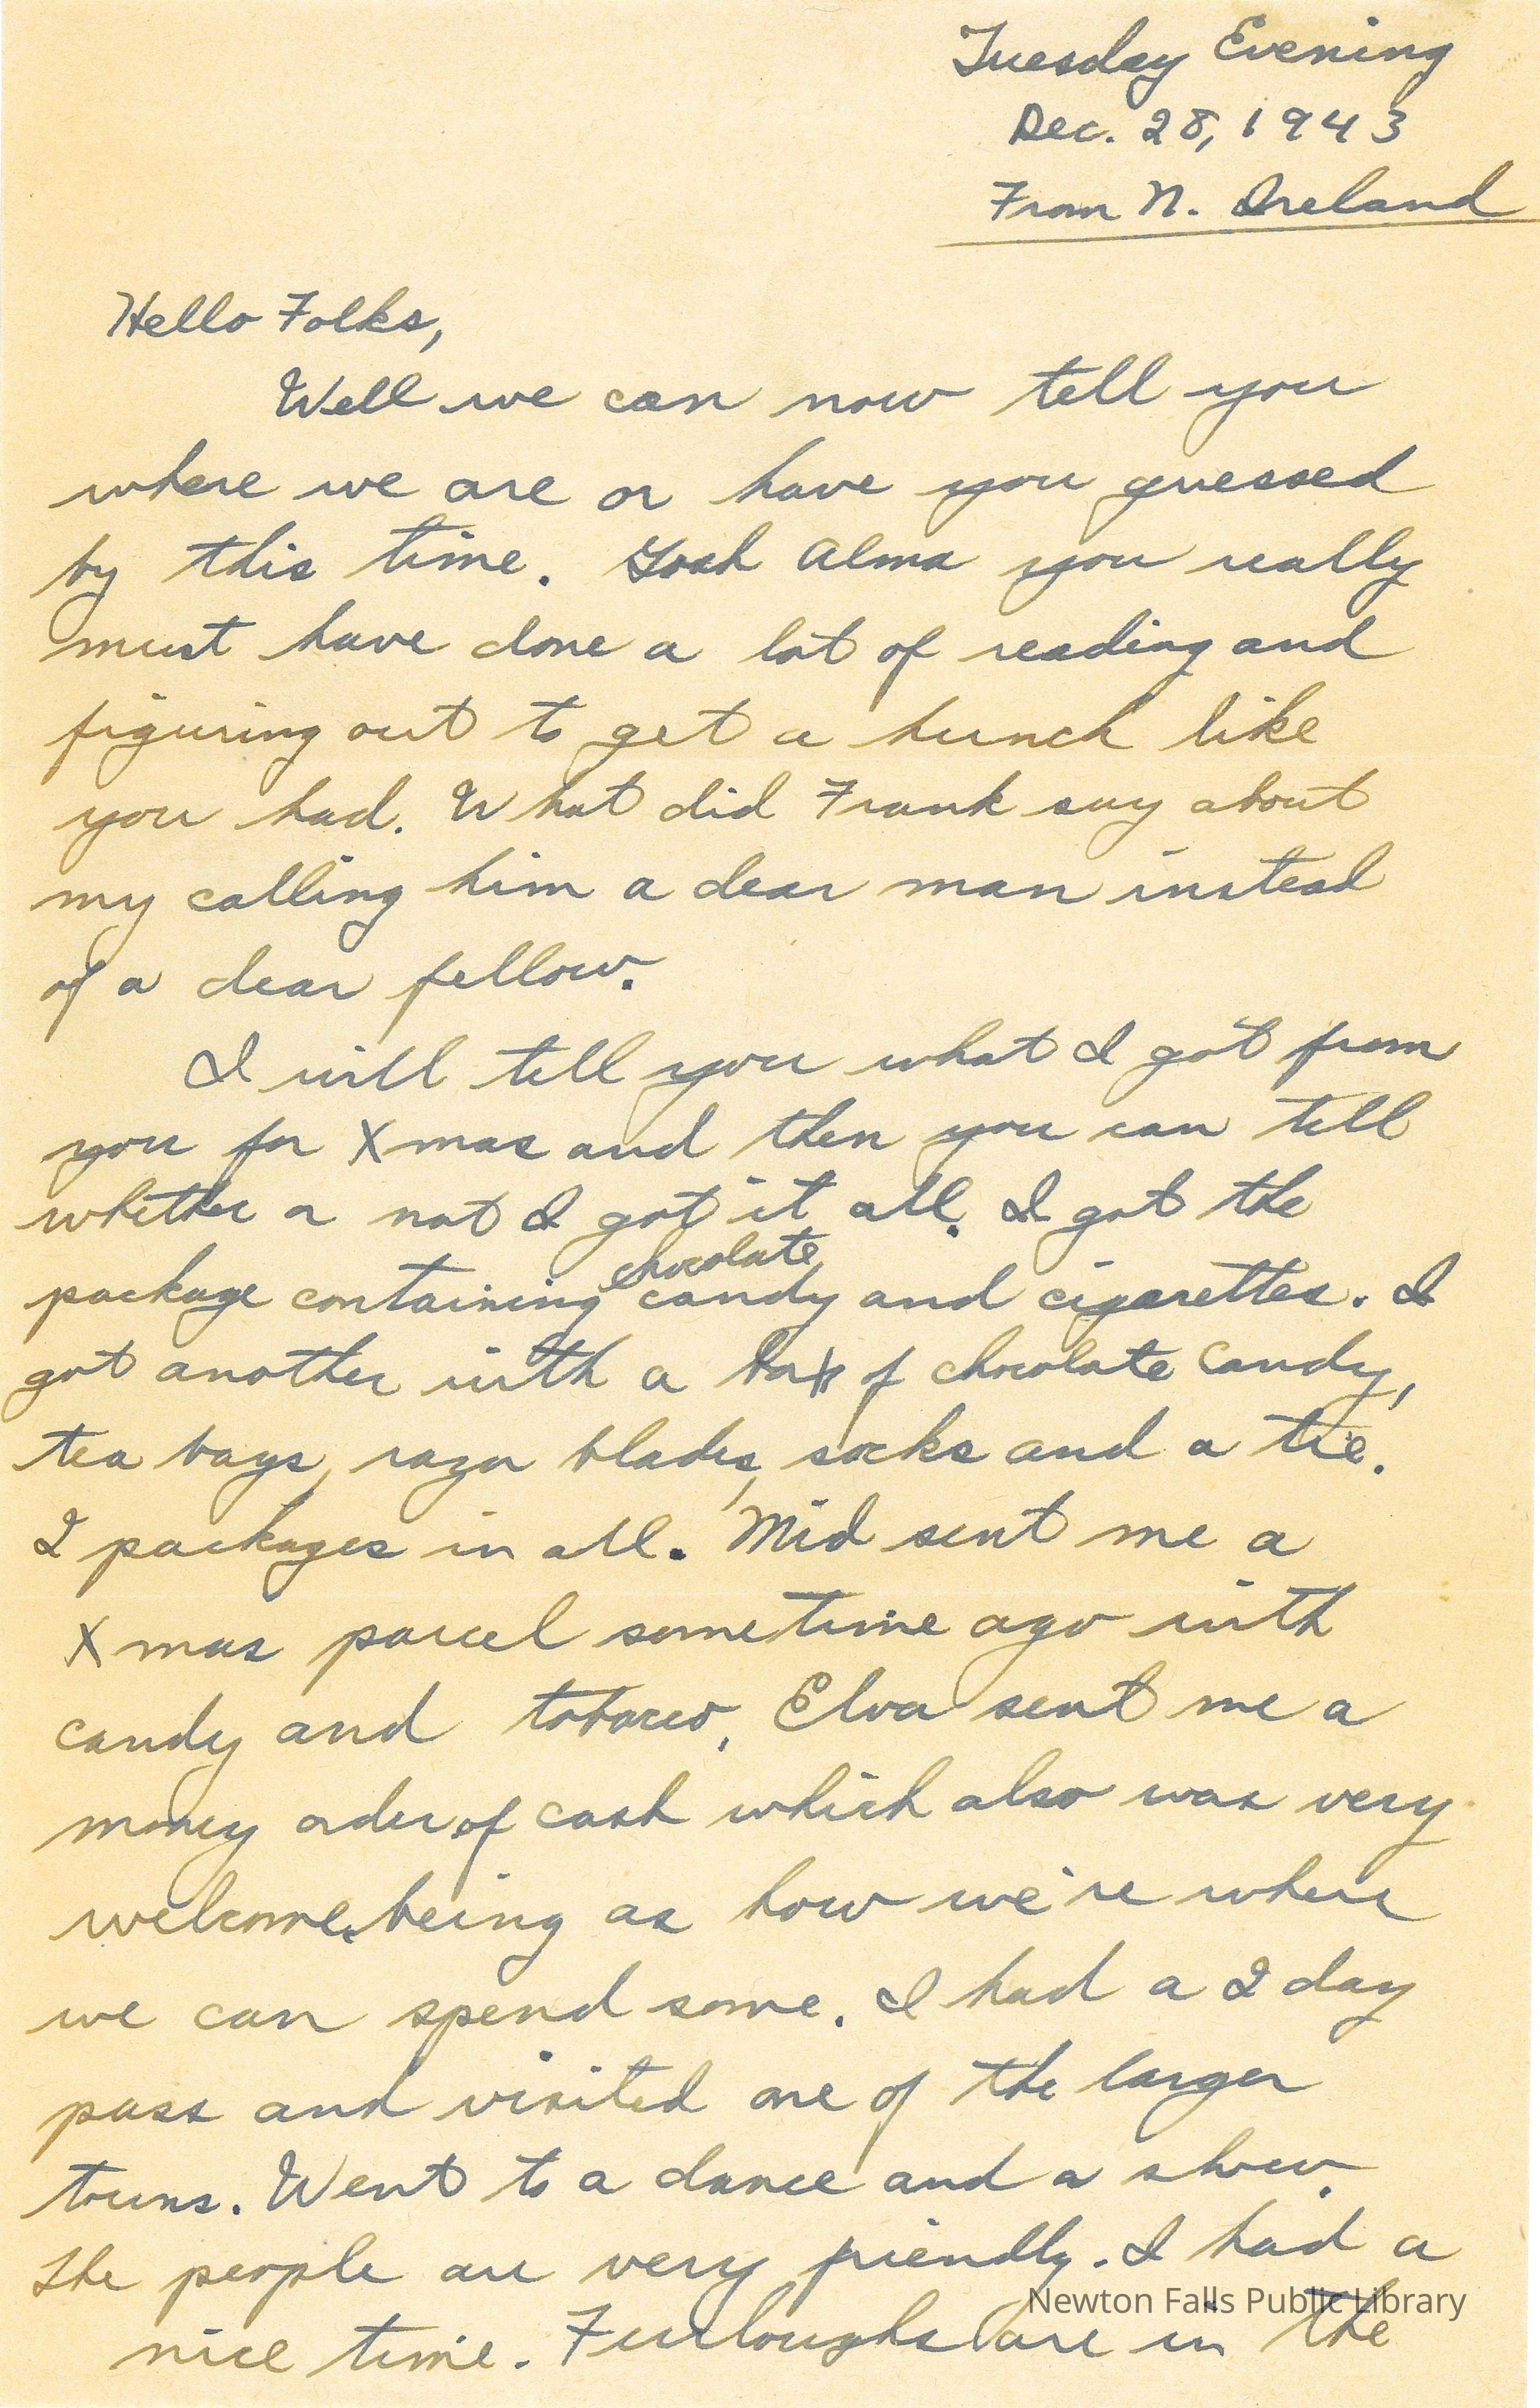 Tuesday Evening
Dec. 28, 1943
From N. Ireland
Hello Folks,
Well we can now tell you
where we are or have you guessed
by this time. Gosh Alma you really
must have done a lot of reading and
figuring out to get a hunch like
you had. What did Frank say about
my calling him a dear man instead
of a dear fellow.
I will tell you what I got from
you for Xmas and then you can tell
whether or not I got it all. I got the
chocolate
package containing candy and cigarettes. I
got another with a box of chocolate candy,
tea bags, razor blades, socks and a tie.
2 packages in all. Mid sent me a
Xmas parcel sometime ago with
candy and tobacco. Elva sent me a
money order of cash which also was very
welcome, being as how we're where
we can spend some. I had a 2 day
pass and visited one of the larger
towns. Went to a dance and a show.
The people are very friendly. I had a
nice time. Furloughs are in the
Newton Falls Public Library